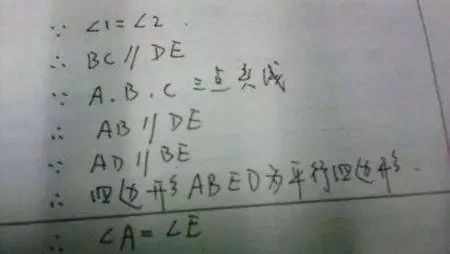 ∵ ∠1=∠2.
∴ BC∥DE
∵ A.B.C三点共线
∴ AB∥DE
∵ AD∥BE
∴ 四边形ABED为平行四边形.
∴ ∠A=∠E